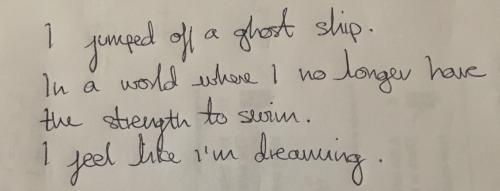 I jumped off a ghost ship.
In a world where I no longer have
the strength to swim.
I feel like I'm dreaming.